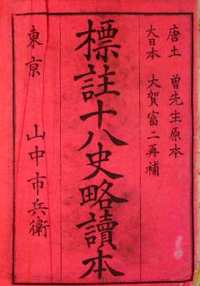 唐土　曽先生原本
大日本　大賀富二再補
標註十八史略讀本
東京　山中市兵衛